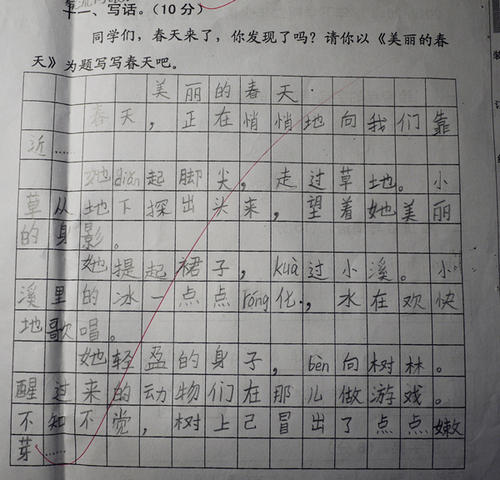 十一、写话。（10分）
同学们，春天来了，你发现了吗？请你以《美丽的春
天》为题写写春天吧。
美丽的春天
春天，正在悄悄地向我们靠
近……
她diǎn起脚尖，走过草地。小
草从地下探出头来，望着她美丽
的身影。
她提起裙子，kuà过小溪。小
溪里的冰一点点róng化，水在欢快
地歌唱。
她轻盈的身子，bēn向树林。
醒过来的动物们在那儿做游戏。
不知不觉，树上已冒出了点点嫩
芽……